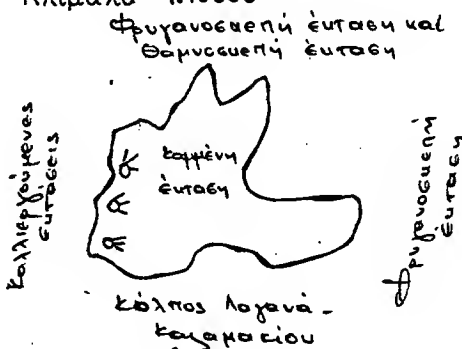 Κλίμακα
Φρυγανοσκεπή έκταση και
Θαμνοσκεπή έκταση
Καλλιεργούμενες
εκτάσεις
καμμένη
έκταση
Φρυγανοσκεπή
έκταση
Κόλπος Λαγανά -
Καλαμακίου